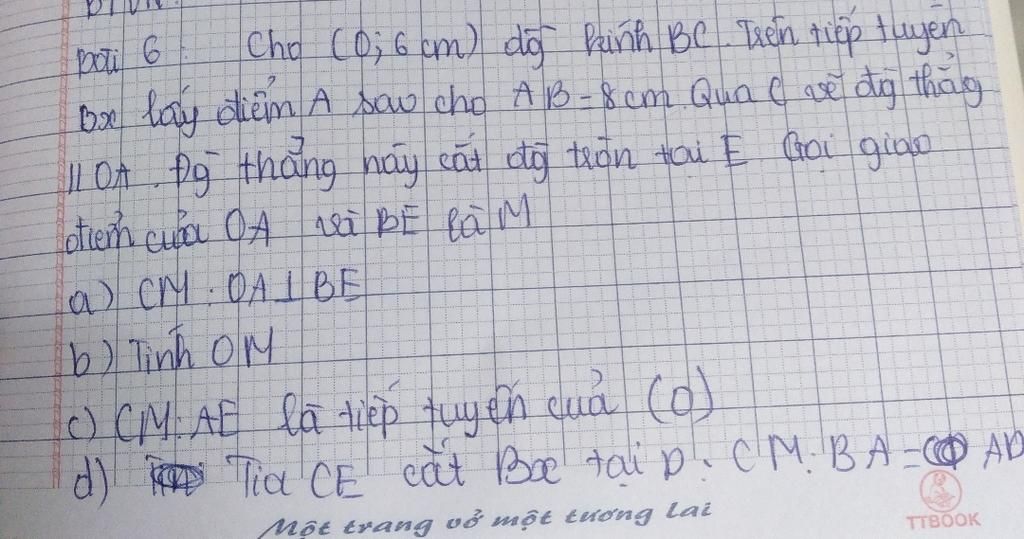 BTVN:
bài 6: Cho (O; 6 cm) đg kính BC. Trên tiếp tuyến
Bx lấy điểm A sao cho AB = 8 cm. Qua C vẽ đg thẳng
// OA. Đg thẳng này cắt đg tròn tại E Gọi giao
điểm của OA và BE là M
a) CM: OA ⊥ BE
b) Tính OM
c) CM: AE là tiếp tuyến của (O)
d) Tia CE cắt Bx tại D. CM: BA = AD
Một trang vở một tương lai
TTBOOK